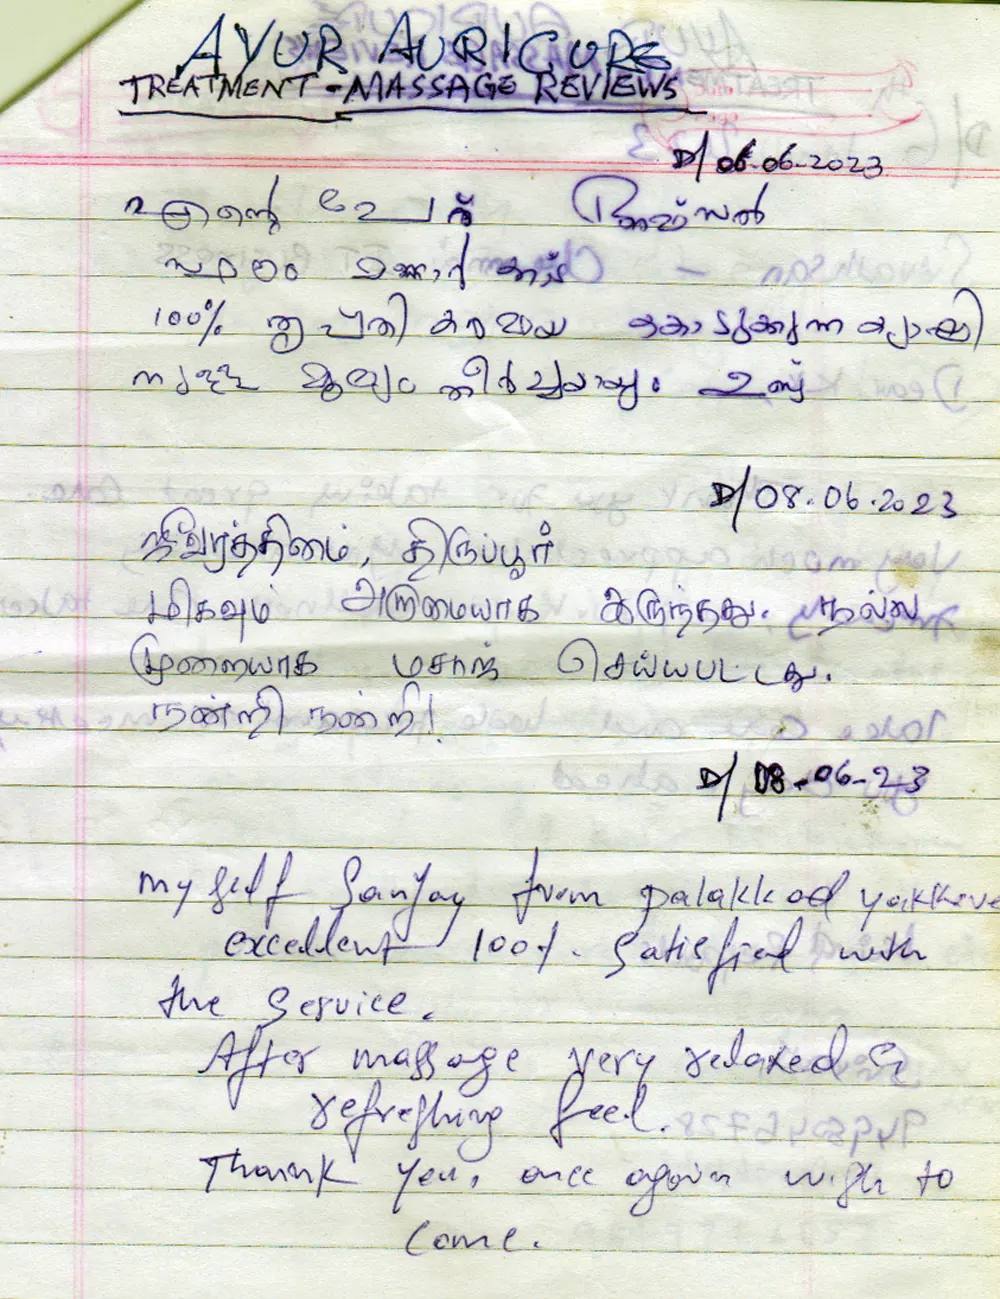 AYUR AURICURE
TREATMENT - MASSAGE REVIEWS
D/ 06.06.2023
എന്റെ പേര് അഫ്സൽ
സ്ഥലം മണ്ണാർകാട്
100% തൃപ്തി കരമായ
D/ 08.06.2023
திருப்பூர்
மிகவும் அருமையாக இருந்தது. நல்ல
முறையாக மசாஜ் செய்யபட்டது.
நன்றி நன்றி!
D/ 08-06-23
myself Sanjay from palakkad
excellent 100%. Satisfied with
the Service.
After massage very relaxed &
refreshing feel.
Thank you, once again wish to
Come.